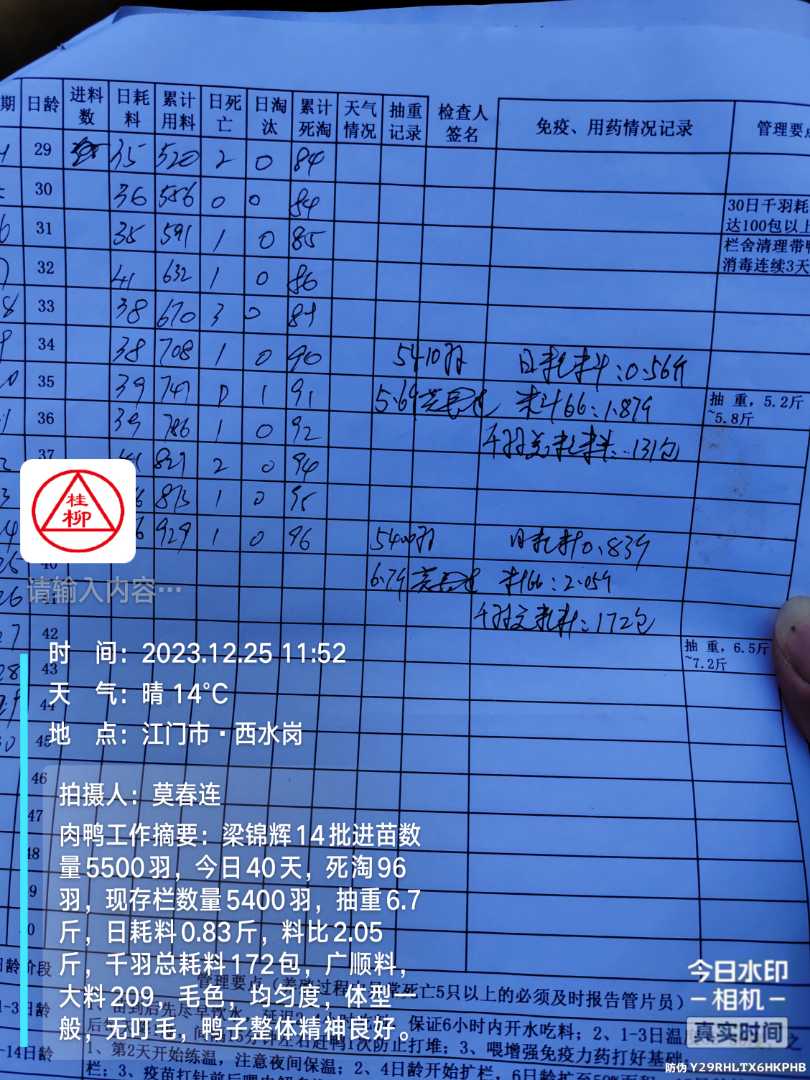 期 日龄 进料数 日耗料 累计用料 日死亡 日淘汰 累计死淘 天气情况 抽重记录 检查人签名 免疫、用药情况记录 管理要点
29 35 520 2 0 84
30 36 556 0 0 84
30日千羽耗
达100包以上
31 35 591 1 0 85
栏舍清理带
消毒连续3天
32 41 632 1 0 86
33 38 670 3 0 89
34 38 708 1 0 90 5410羽 日耗料:0.56斤
35 39 747 0 1 91 5.6斤 料比:1.87斤
抽重,5.2斤
~5.8斤
36 39 786 1 0 92 千羽总耗料:131包
37 827 2 0 94
桂柳
873 1 0 95
929 1 0 96 5400羽 日耗料0.83斤
请输入内容…
6.7斤 料比:2.05斤
千羽总耗料:172包
42
抽重,6.5斤
~7.2斤
时 间:2023.12.25 11:52
43
天 气:晴 14℃
44
地 点:江门市·西水岗
45
46
拍摄人:莫春连
47
肉鸭工作摘要:梁锦辉14批进苗数
量5500羽,今日40天,死淘96
羽,现存栏数量5400羽,抽重6.7
斤,日耗料0.83斤,料比2.05
斤,千羽总耗料172包,广顺料,
大料209,毛色,均匀度,体型一
般,无叮毛,鸭子整体精神良好。
日龄阶段 管理要点 死亡5只以上的必须及时报告管片员)
保证6小时内开水吃料;2、1-3日温
1次防止打堆;3、喂增强免疫力药打好基础;
-14日龄 1、第2天开始练温,注意夜间保温;2、4日龄开始扩栏,
今日水印
相机
真实时间
防伪 Y29RHLTX6HKPHB